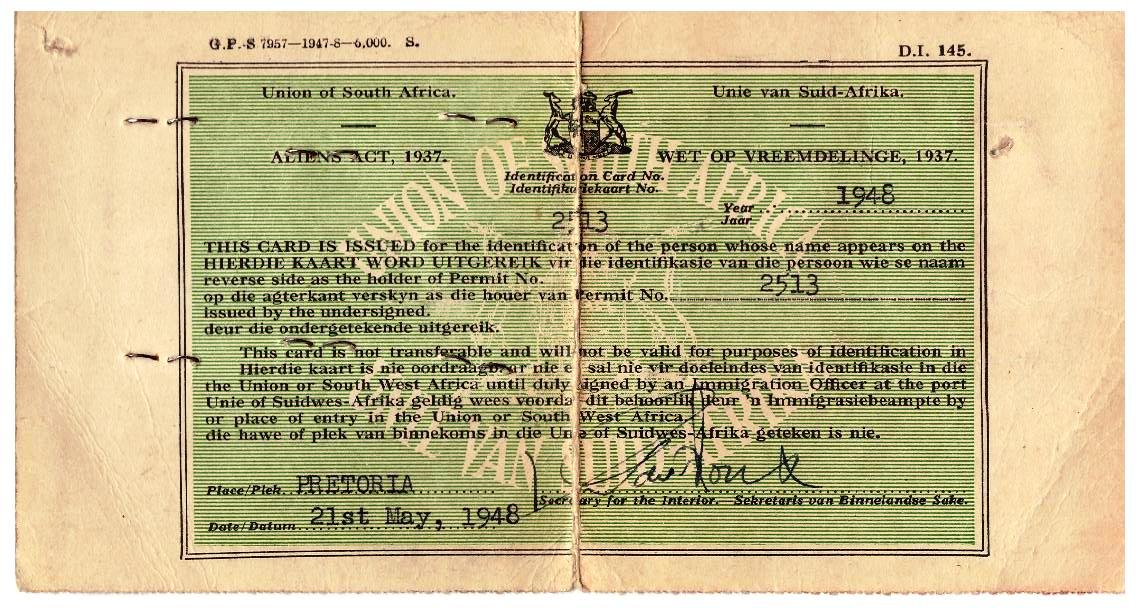 G.P.-S 7957—1947-8—6,000. S.
D.I. 145.
Union of South Africa.
Unie van Suid-Afrika.
ALIENS ACT, 1937.
WET OP VREEMDELINGE, 1937.
UNION OF SOUTH AFRICA
UNIE VAN SUID-AFRIKA
Identification Card No.
Identifikasiekaart No.
Year 1948
Jaar
2513
THIS CARD IS ISSUED for the identification of the person whose name appears on the
HIERDIE KAART WORD UITGEREIK vir die identifikasie van die persoon wie se naam
reverse side as the holder of Permit No.
op die agterkant verskyn as die houer van Permit No. 2513
issued by the undersigned.
deur die ondergetekende uitgereik.
This card is not transferable and will not be valid for purposes of identification in
Hierdie kaart is nie oordraagbaar nie en sal nie vir doeleindes van identifikasie in die
the Union or South West Africa until duly signed by an Immigration Officer at the port
Unie of Suidwes-Afrika geldig wees voordat dit behoorlik deur 'n Immigrasiebeampte by
or place of entry in the Union or South West Africa.
die hawe of plek van binnekoms in die Unie of Suidwes-Afrika geteken is nie.
Place/Plek PRETORIA
Secretary for the Interior. Sekretaris van Binnelandse Sake.
Date/Datum 21st May, 1948